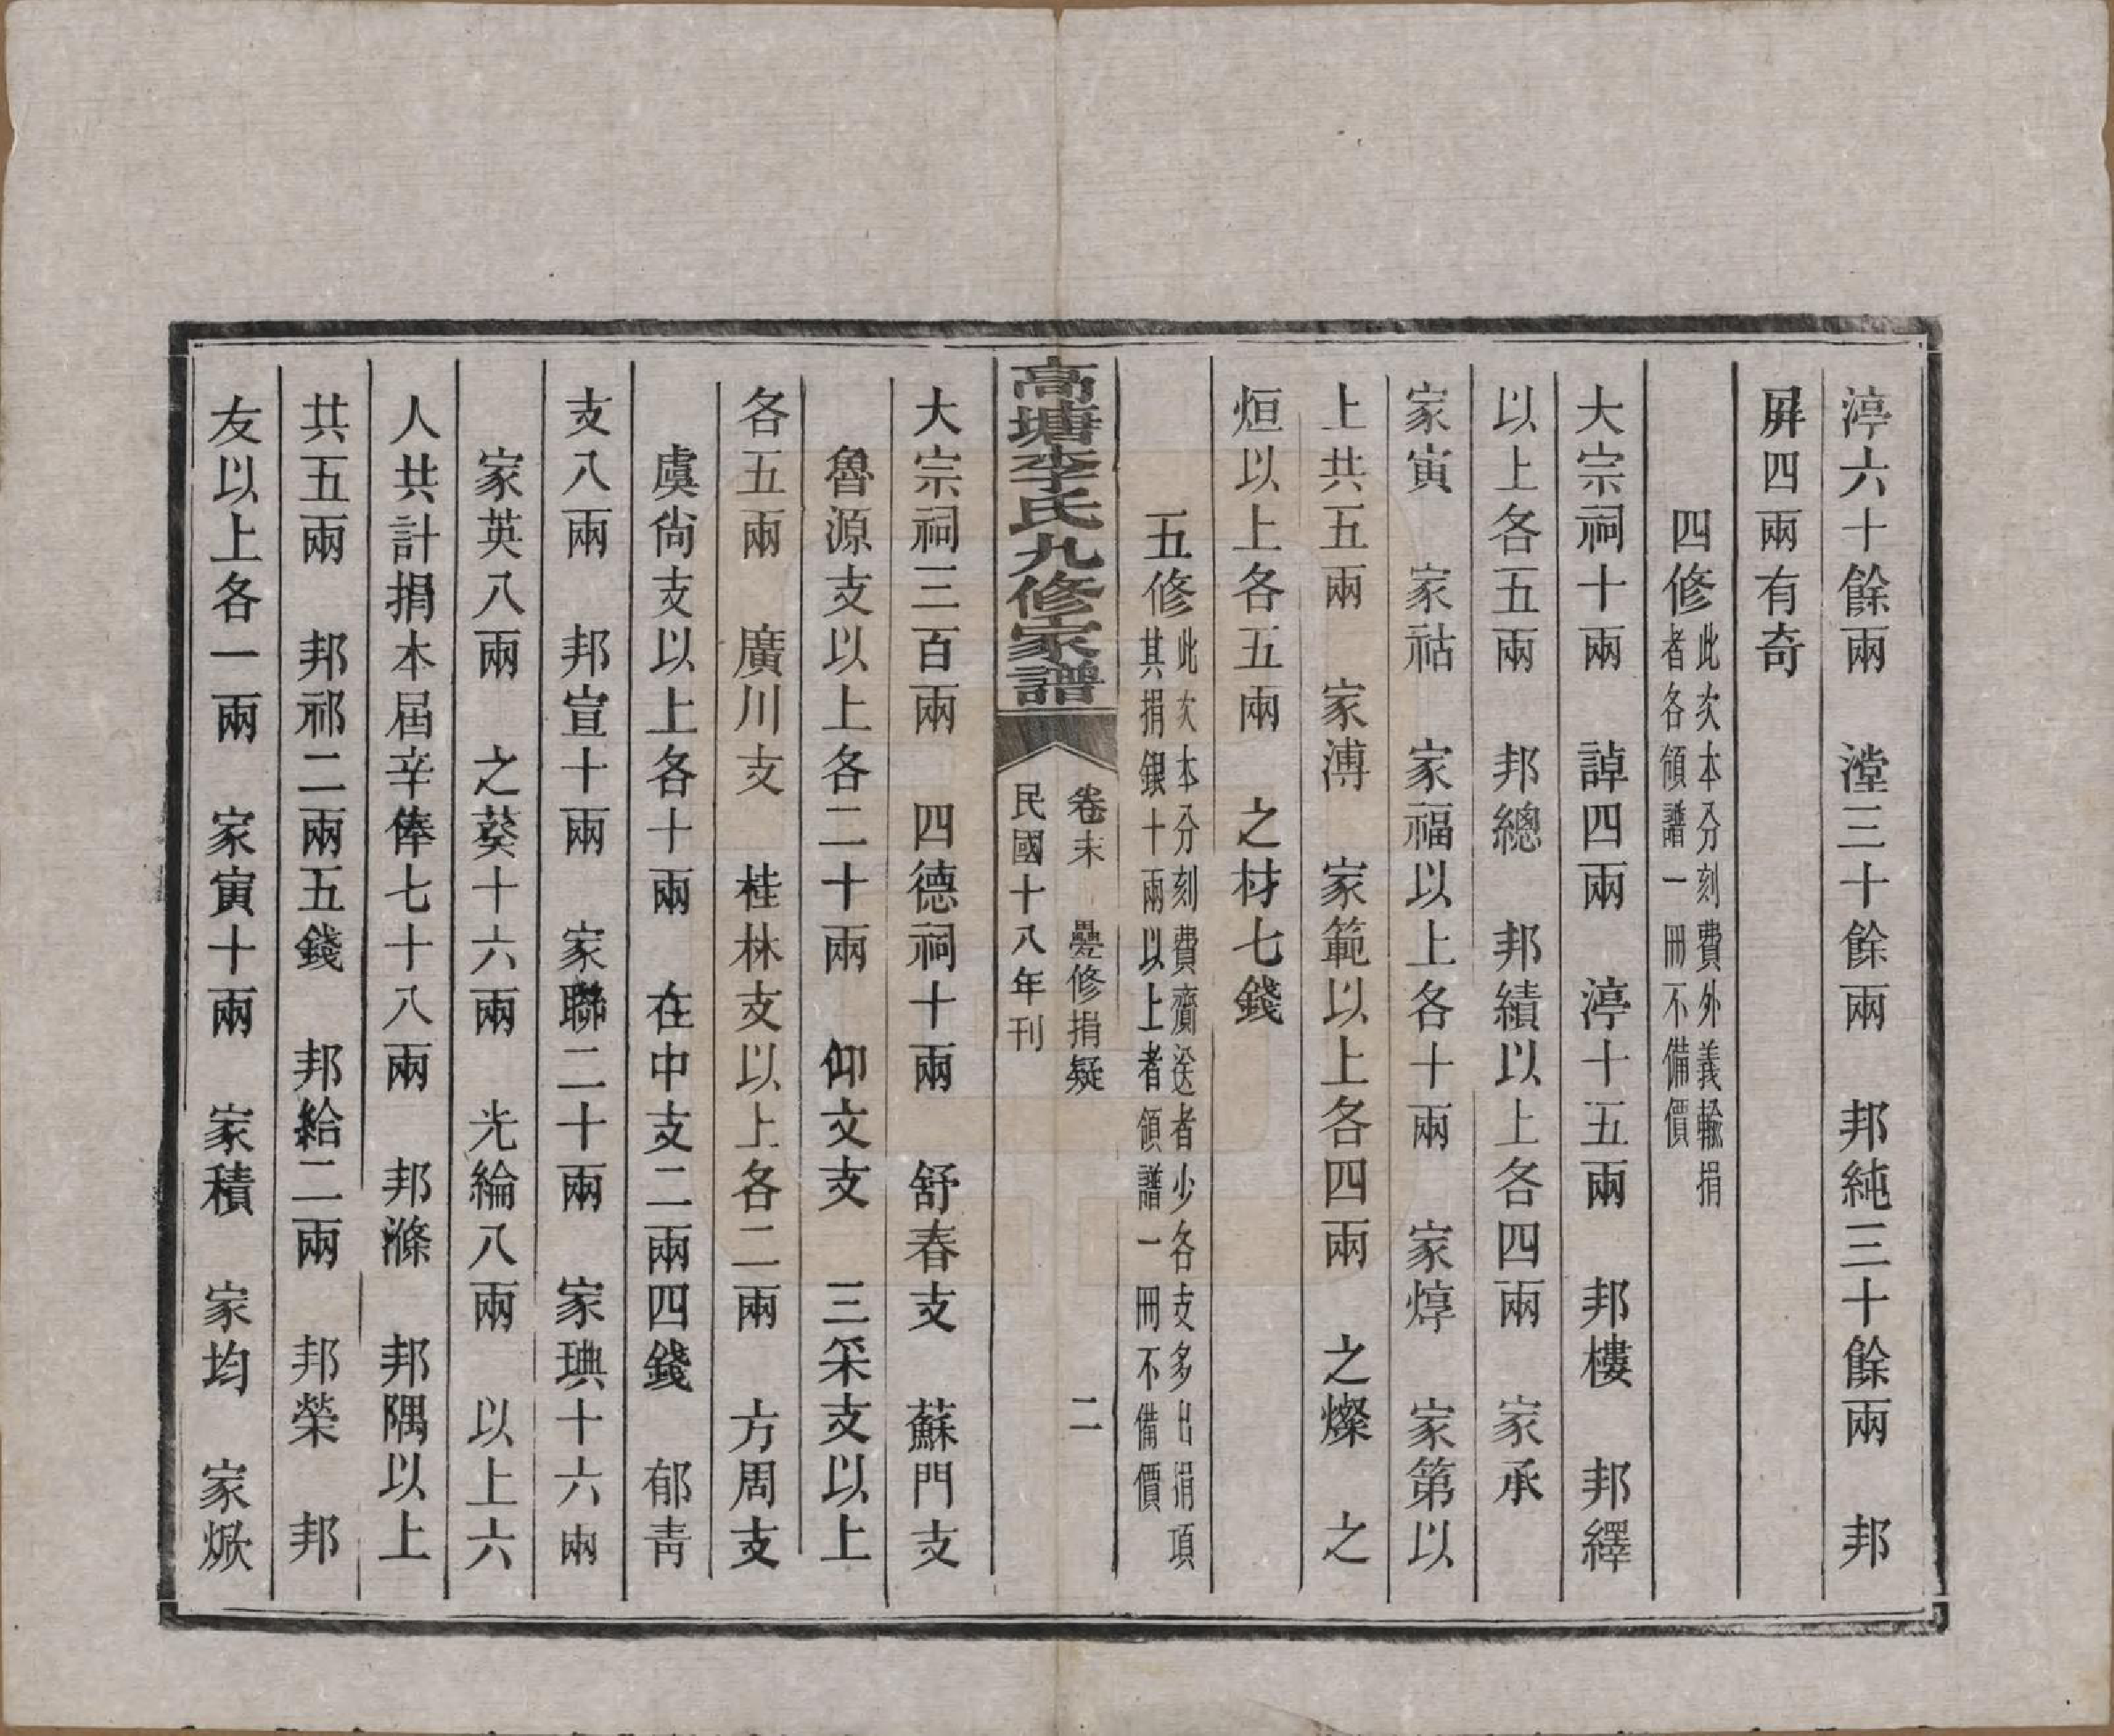 渟六十餘兩　漟三十餘兩　邦純三十餘兩　邦
屏四兩有奇
四修此次本分刻費外義輸捐
者各領譜一冊不備價
大宗祠十兩　諄四兩　渟十五兩　邦樓　邦繹
以上各五兩　邦總　邦績以上各四兩　家承
家寅　家祜　家福以上各十兩　家焞　家第以
上共五兩　家溥　家範以上各四兩　之燦　之
烜以上各五兩　之材七錢
五修此次本分刻費齎送者少各支多出捐項
其捐銀十兩以上者領譜一冊不備價
高塘李氏九修家譜
卷末　疊修捐疑　二
民國十八年刊
大宗祠三百兩　四德祠十兩　舒春支　蘇門支
魯源支以上各二十兩　仰文支　三采支以上
各五兩　廣川支　桂林支以上各二兩　方周支
虞尙支以上各十兩　在中支二兩四錢　郁靑
支八兩　邦宣十兩　家聯二十兩　家琠十六兩
家英八兩　之葵十六兩　光綸八兩　以上六
人共計捐本屆辛俸七十八兩　邦滌　邦隅以上
共五兩　邦祁二兩五錢　邦給二兩　邦榮　邦
友以上各一兩　家寅十兩　家積　家均　家焮